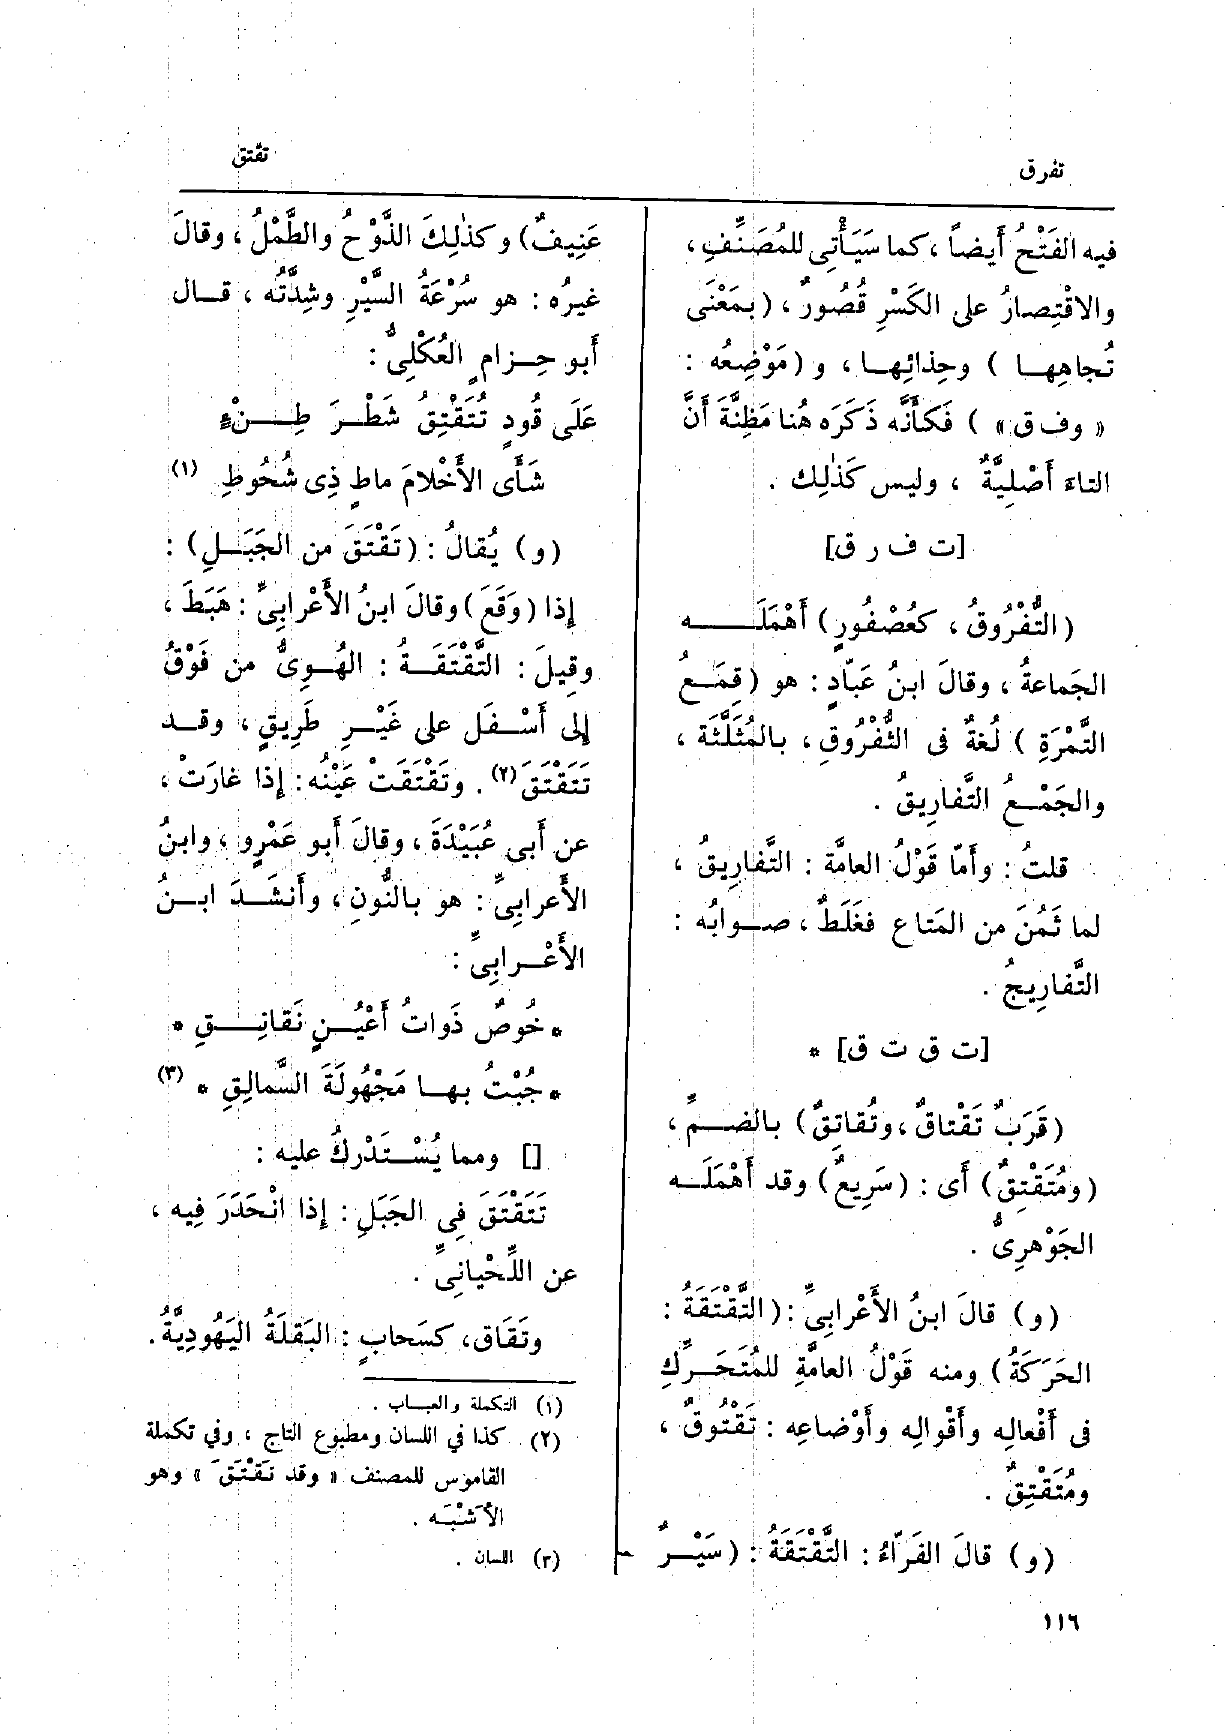 تفرق
تقتق
فيه الفَتْحُ أَيضاً، كما سَيَأْتِى للمُصَنِّفِ،
والاقْتِصارُ على الكَسْرِ قُصُورٌ، (بمَعْنَى
تُجاهِهـا ) وحِذائِهـا، و (مَوْضِعُه :
« وف ق» ) فَكأَنَّه ذَكَرَه هُنا مَظِنَّةَ أَنَّ
التاءَ أَصْلِيَّةٌ ، وليس كَذٰلِك .
[ت ف ر ق]
(التُّفْرُوقُ، كعُصْفُورٍ) أَهْمَلَـــه
الجَماعةُ، وقالَ ابنُ عَبّادٍ : هو (قِمَـعُ
التَّمْرَةِ ) لُغةٌ فى الثُّفْرُوقِ، بالمُثَلَّثَة ،
والجَمْـعُ التَّفاريقُ .
قلتُ : وأَمّا قَوْلُ العامَّة : التَّفارِيقُ ،
لما ثَمُنَ من المَتاع فغَلَطٌ، صـوابُه :
التَّفارِيجُ .
[ت ق ت ق] *
(قَرَبٌ تَقْتاقٌ، وتُقاتِقٌ) بالضـمِّ،
(ومُتَقْتِقٌ) أَى : (سَرِيعٌ) وقد أَهْمَلَـه
الجَوْهرِىُّ .
(و) قالَ ابنُ الأَعْرابِىِّ : (التَّقْتَقَةُ :
الحَرَكَةُ) ومنه قَوْلُ العامَّةِ للمُتَحَـرِّكِ
فى أَفْعالِه وأَقْوالِه وأَوْضاعِه : تَقْتُوقٌ ،
ومُتَقْتِقٌ .
(و) قالَ الفَرّاءُ : التَّقْتَقَةُ : (سَيْـرٌ
عَنِيفٌ) وكذٰلِكَ الذَّوْحُ والطَّمْلُ، وقالَ
غيرُه : هو سُرْعَةُ السَّيْرِ وشِدَّتُه ، قـال
أَبو حِـزامٍ العُكْلِىُّ :
عَلَى قُودٍ تُتَقْتِقُ شَطْـرَ طِـنْءٍ
شَأَى الأَخْلامَ ماطٍ ذِى شُحُوطِ (١)
(و) يُقالُ : (تَقْتَقَ من الجَبَـلِ) :
إذا (وَقَعَ) وقالَ ابنُ الأَعْرابِىِّ : هَبَطَ ،
وقِيلَ : التَّقْتَقَـةُ : الهُـوِىُّ من فَوْقُ
إلى أَسْـفَل على غَيْـرِ طَرِيقٍ، وقـد
تَتَقْتَقَ (٢) . وتَقْتَقَتْ عَيْنُه : إذا غارَتْ ،
عن أَبى عُبَيْدَةَ ، وقالَ أَبو عَمْرٍو ، وابنُ
الأَعرابِىِّ : هو بالنُّونِ، وأَنشَـدَ ابـنُ
الأَعْـرابِىِّ :
* خُوصٌ ذَواتُ أَعْيُـنٍ نَقانِـــقِ *
* جُبْتُ بهـا مَجْهُولَةَ السَّمالِقِ * (٣)
[] ومما يُسْـتَدْركُ عليه :
تَتَقْتَقَ فى الجَبَلِ : إذا انْحَدَرَ فِيه ،
عن اللِّحْيانِىِّ .
وتَقَاق، كسَحابٍ : البَقلَةُ اليَهُودِيَّةُ .
(١) التكملة والعبـاب .
(٢) كذا في اللسان ومطبوع التاج ، وفي تكملة
القاموس للمصنف « وقد تَقْتَقَ » وهو
الأَشْبَه .
(٣) اللسان .
١١٦